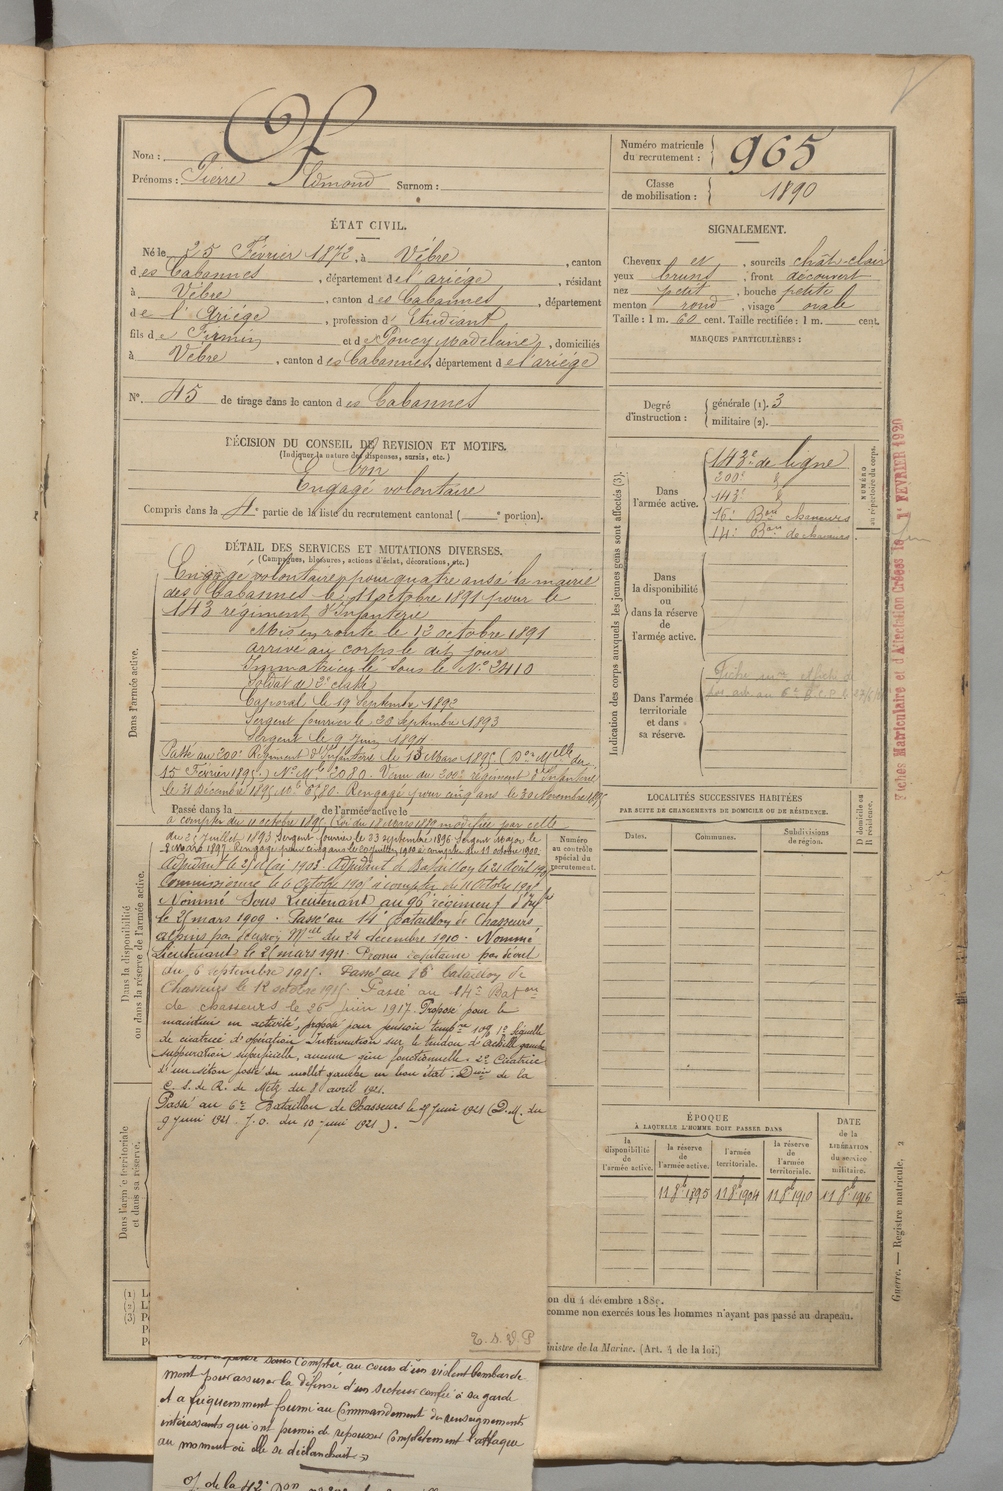 Nom : Of
Prénoms : Pierre Edmond Surnom :
Numéro matricule du recrutement : 965
Classe de mobilisation : 1890
ÉTAT CIVIL.
Né le 25 Février 1872, à Vèbre, canton
des Cabannes, département de l'ariège, résidant
à Vèbre, canton des Cabannes, département
de l'Ariège, profession d'Etudiant
fils de Firmin et de Poucy Madeleine, domiciliés
à Vèbre, canton des Cabannes, département de l'ariège
N° 45 de tirage dans le canton des Cabannes
DÉCISION DU CONSEIL DE REVISION ET MOTIFS.
(Indiquer la nature des dispenses, sursis, etc.)
bon
Engagé volontaire
Compris dans la 4e partie de la liste du recrutement cantonal ( e portion).
SIGNALEMENT.
Cheveux et, sourcils chât-clair
yeux bruns, front découvert
nez petit, bouche petite
menton rond, visage ovale
Taille : 1 m. 60 cent. Taille rectifiée : 1 m. cent.
MARQUES PARTICULIÈRES :
Degré d'instruction : générale (1). 3
militaire (2).
DÉTAIL DES SERVICES ET MUTATIONS DIVERSES.
(Campagnes, blessures, actions d'éclat, décorations, etc.)
Dans l'armée active.
Engagé volontaire pour quatre ans à la mairie
des Cabannes le 11 octobre 1891 pour le
143 régiment d'Infanterie
Mis en route le 12 octobre 1891
arrivé au corps le dit jour
Immatriculé sous le N° 2410
Soldat de 2e classe
Caporal le 19 Septembre 1892
Sergent fourrier le 30 Septembre 1893
Sergent le 9 Juin 1894
Passé au 300e Régiment d'Infanterie le 13 Mars 1895 (Don Mlle du
15 Février 1895.) No Mle 2080. Venu du 300e régiment d'Infanterie
le 31 Décembre 1895. Rengagé pour cinq ans le 30 Novembre 1895
Passé dans la de l'armée active le
à compter du 11 octobre 1895 (Loi du 18 mars 1889 modifiée par celle
Sergent fourrier le 23 septembre 1896 Sergent Major le
Adjudant de Bataillon le 21 Août
Commissionné le 6 octobre à compter du 11 Octobre
Nommé Sous Lieutenant au 96 régiment d'Infie
le 25 mars 1909. Passé au 14e Bataillon de Chasseurs
alpins par décision Mlle du 24 décembre 1910. Nommé
Lieutenant le 25 mars 1911. Promu capitaine par décret
du 6 septembre 1915. Passé au 16e bataillon de
Chasseurs le 12 octobre 1915. Passé au 14e Baton
de chasseurs le 26 Juin 1917. Proposé pour le
maintien en activité, proposé pour pension tempre 10% 1° Séquelle
de cicatrice d'opération Intervention sur le tendon d'achille gauche
suppuration superficielle, aucune gêne fonctionnelle. 2° Cicatrice
d'un séton post. du mollet gauche en bon état. Don de la
C. S. de R. de Metz du 8 avril 1921.
Passé au 6e Bataillon de Chasseurs le 25 Juin 1921 (D.M. du
9 Juin 1921 - J.O. du 10 Juin 1921).
T. S. V. P
Dans la disponibilité ou dans la réserve de l'armée active.
Dans l'armée territoriale et dans sa réserve.
Indication des corps auxquels les jeunes gens sont affectés (3).
Dans l'armée active.
143e de ligne
300e d
143e d
16e Bon chasseurs
14e Bon de chasseurs
NUMÉRO au répertoire du corps.
Dans la disponibilité ou dans la réserve de l'armée active.
Dans l'armée territoriale et dans sa réserve.
Fiches Matriculaire et d'Affectation Créées le 1er FEVRIER 1920
LOCALITÉS SUCCESSIVES HABITÉES
PAR SUITE DE CHANGEMENTS DE DOMICILE OU DE RÉSIDENCE.
Numéro au contrôle spécial du recrutement.
Dates.
Communes.
Subdivisions de région.
D domicile ou R résidence.
ÉPOQUE
À LAQUELLE L'HOMME DOIT PASSER DANS
la disponibilité de l'armée active.
la réserve de l'armée active.
l'armée territoriale.
la réserve de l'armée territoriale.
DATE de la LIBÉRATION du service militaire.
11 8b 1895
11 8b 1904
11 8b 1910
11 8b 1916
Guerre. — Registre matricule. 2
(1)
(2)
(3)
on du 4 décembre 1885.
comme non exercés tous les hommes n'ayant pas passé au drapeau.
inistre de la Marine. (Art. 4 de la loi.)
sans Compter au cours d'un violent bombarde
ment pour assurer la défense d'un secteur confié à sa garde
et a fréquemment fourni au Commandement des renseignements
intéressants qui ont permis de repousser complètement l'attaque
au moment où elle se déclanchait »
O/ de la 42e Don